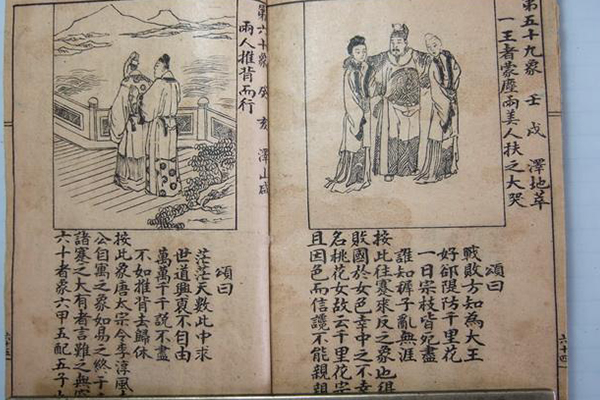 第五十九象　壬戌　澤地萃
一王者蒙塵兩美人扶之大哭
頌曰
戰敗方知為大王
好郤隄防千里花
一日宗枝皆死盡
誰知裤子亂無涯
按此往蹇來反之象也
敗國於女色幸中之不幸
名桃花女故云千里花宗
且因色而信讒不能親親
六十四
第六十象　癸亥　澤山咸
兩人推背而行
頌曰
茫茫天數此中求
世道興衰不自由
萬萬千千說不盡
不如推背去歸休
按此象唐太宗令李淳風
公自寓之象如易之終于
諸蹇之大有者言雖之無
六十者象六甲五配五子
六十五